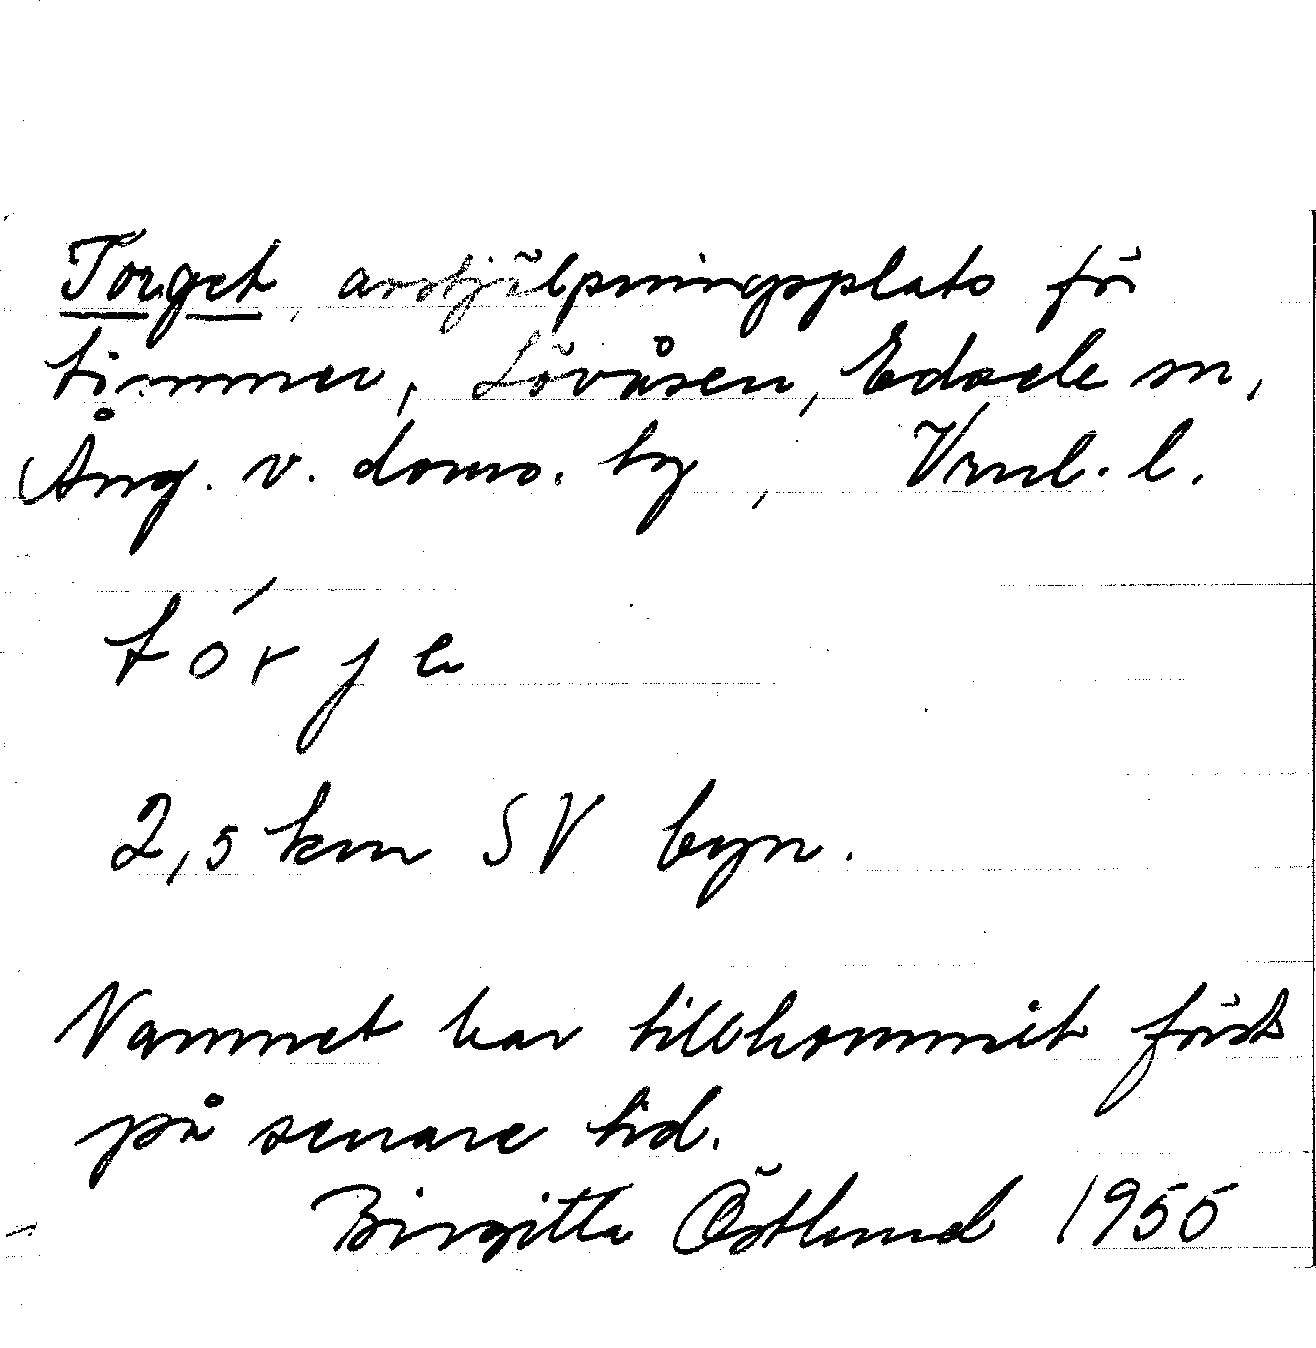 Torget, avstjälpningsplats för
timmer, Lövåsen, Edsele sn,
Ång. v. doms. by, Vrnl. l.
tórje
2,5 km SV byn.
Namnet har tillkommit först
på senare tid.
Birgitta Östlund 1955